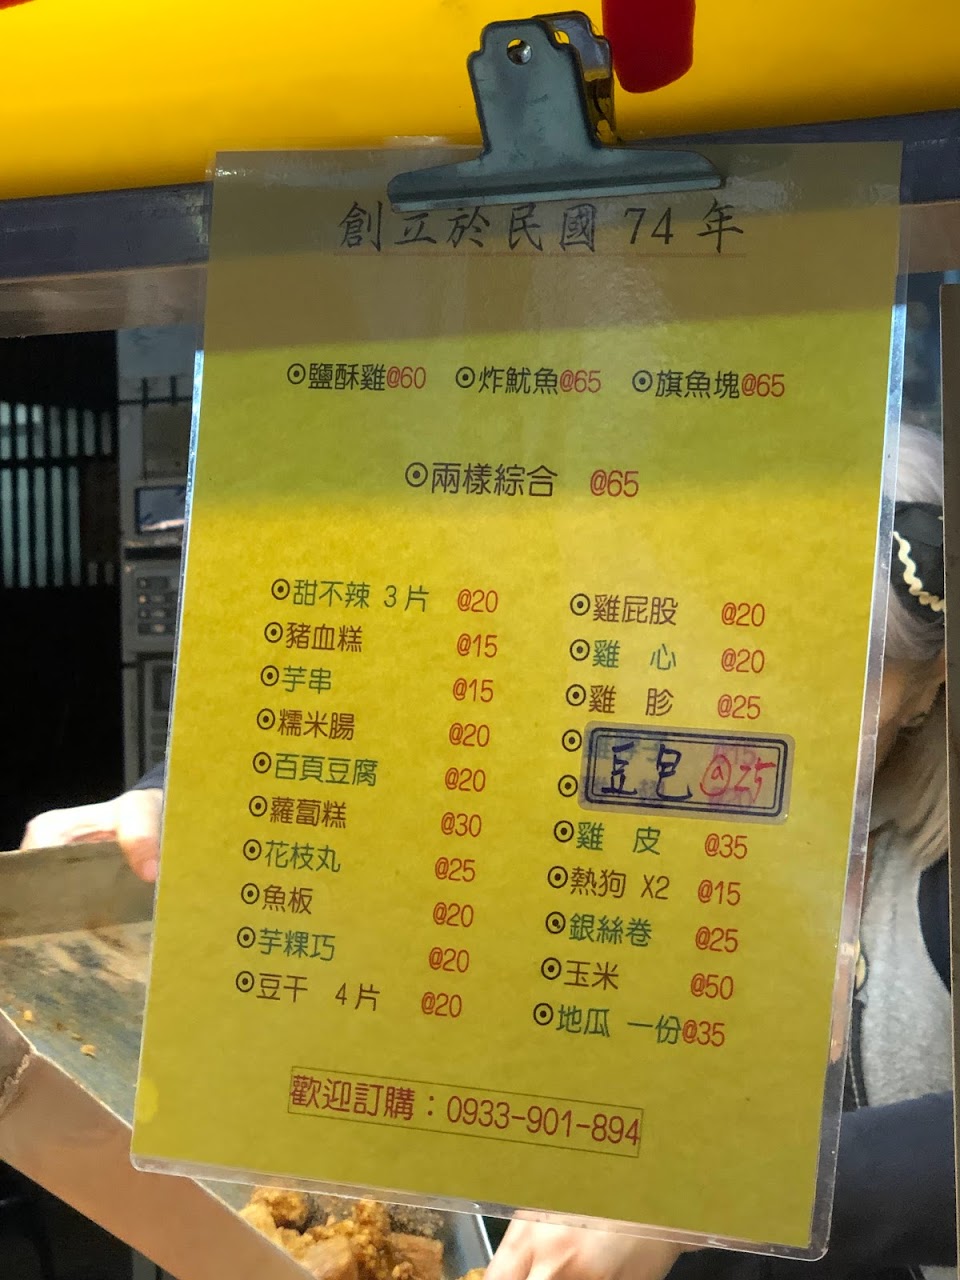 創立於民國 74 年
⊙鹽酥雞@60 ⊙炸魷魚@65 ⊙旗魚塊@65
⊙兩樣綜合 @65
⊙甜不辣 3片 @20
⊙豬血糕 @15
⊙芋串 @15
⊙糯米腸 @20
⊙百頁豆腐 @20
⊙蘿蔔糕 @30
⊙花枝丸 @25
⊙魚板 @20
⊙芋粿巧 @20
⊙豆干 4片 @20
⊙雞屁股 @20
⊙雞 心 @20
⊙雞 胗 @25
豆皂 @25
⊙雞 皮 @35
⊙熱狗 X2 @15
⊙銀絲卷 @25
⊙玉米 @50
⊙地瓜 一份@35
歡迎訂購：0933-901-894